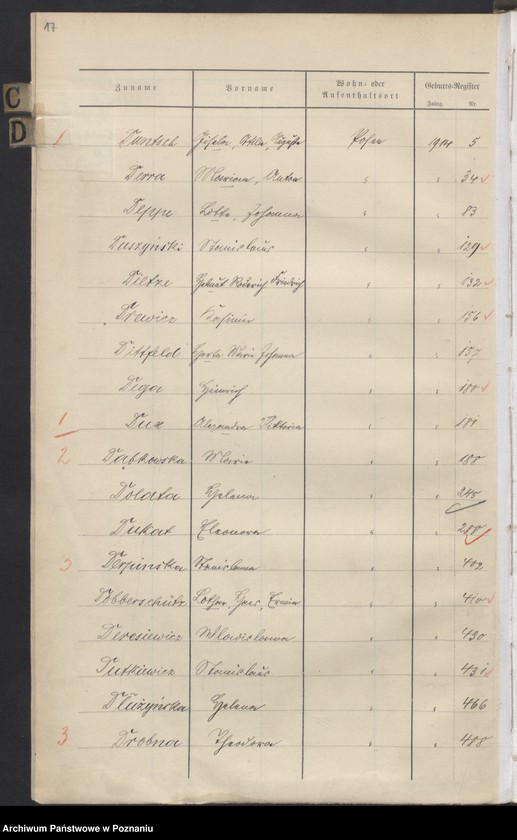 17
Zuname Vorname Wohn- oder Aufenthaltsort Geburts-Register
Jahrg. Nr.
C
D
1 Duntsch Posen 1914 5
Derra Mariana, Anton " " 34
Deppe Lotte, Johanna " " 83
Duszyński Stanislaus " " 129
Dietze Roderich Friedrich " " 132
Drewicz Kasimir " " 156
Dittfeld Herta Maria Johanna " " 157
Dega Heinrich " " 180
1 Dux Alexandra Viktoria " " 181
2 Dąbkowska Maria " " 188
Dolata Helena " " 245
Dukat Eleonora " " 280
3 Derpinska Stanislawa " " 402
Döbberschütz Lothar, Hans, Erwin " " 410
Deresiewicz Wladislawa " " 430
Dutkiewicz Stanislaus " " 431
Dłużyńska Helena " " 466
3 Drobna Theodora " " 488
Archiwum Państwowe w Poznaniu